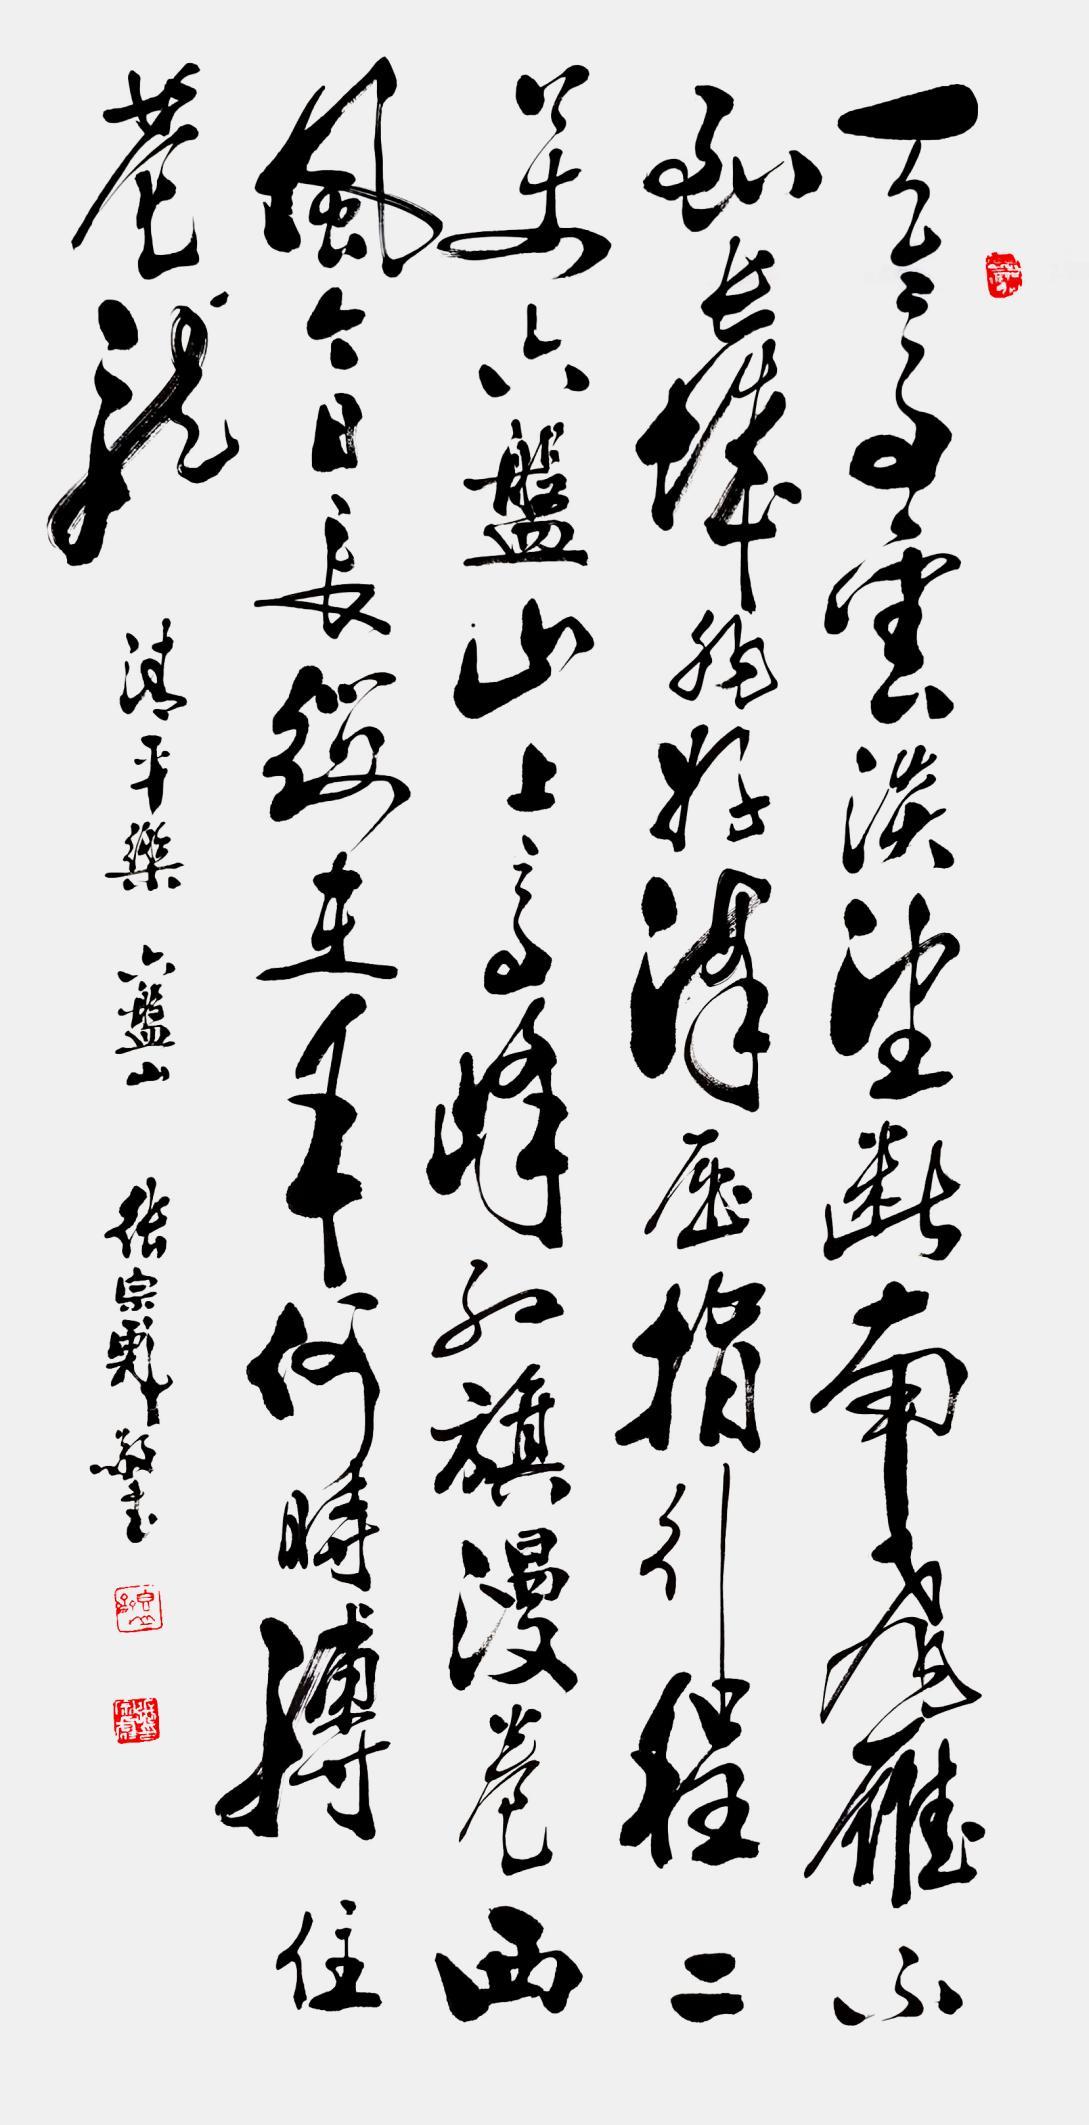 天高雲淡望斷南飛雁不
到長城非好漢屈指行程二
萬六盤山上高峰紅旗漫卷西
風今日長纓在手何時縛住
蒼龍
清平樂 六盤山 張宗 敬書